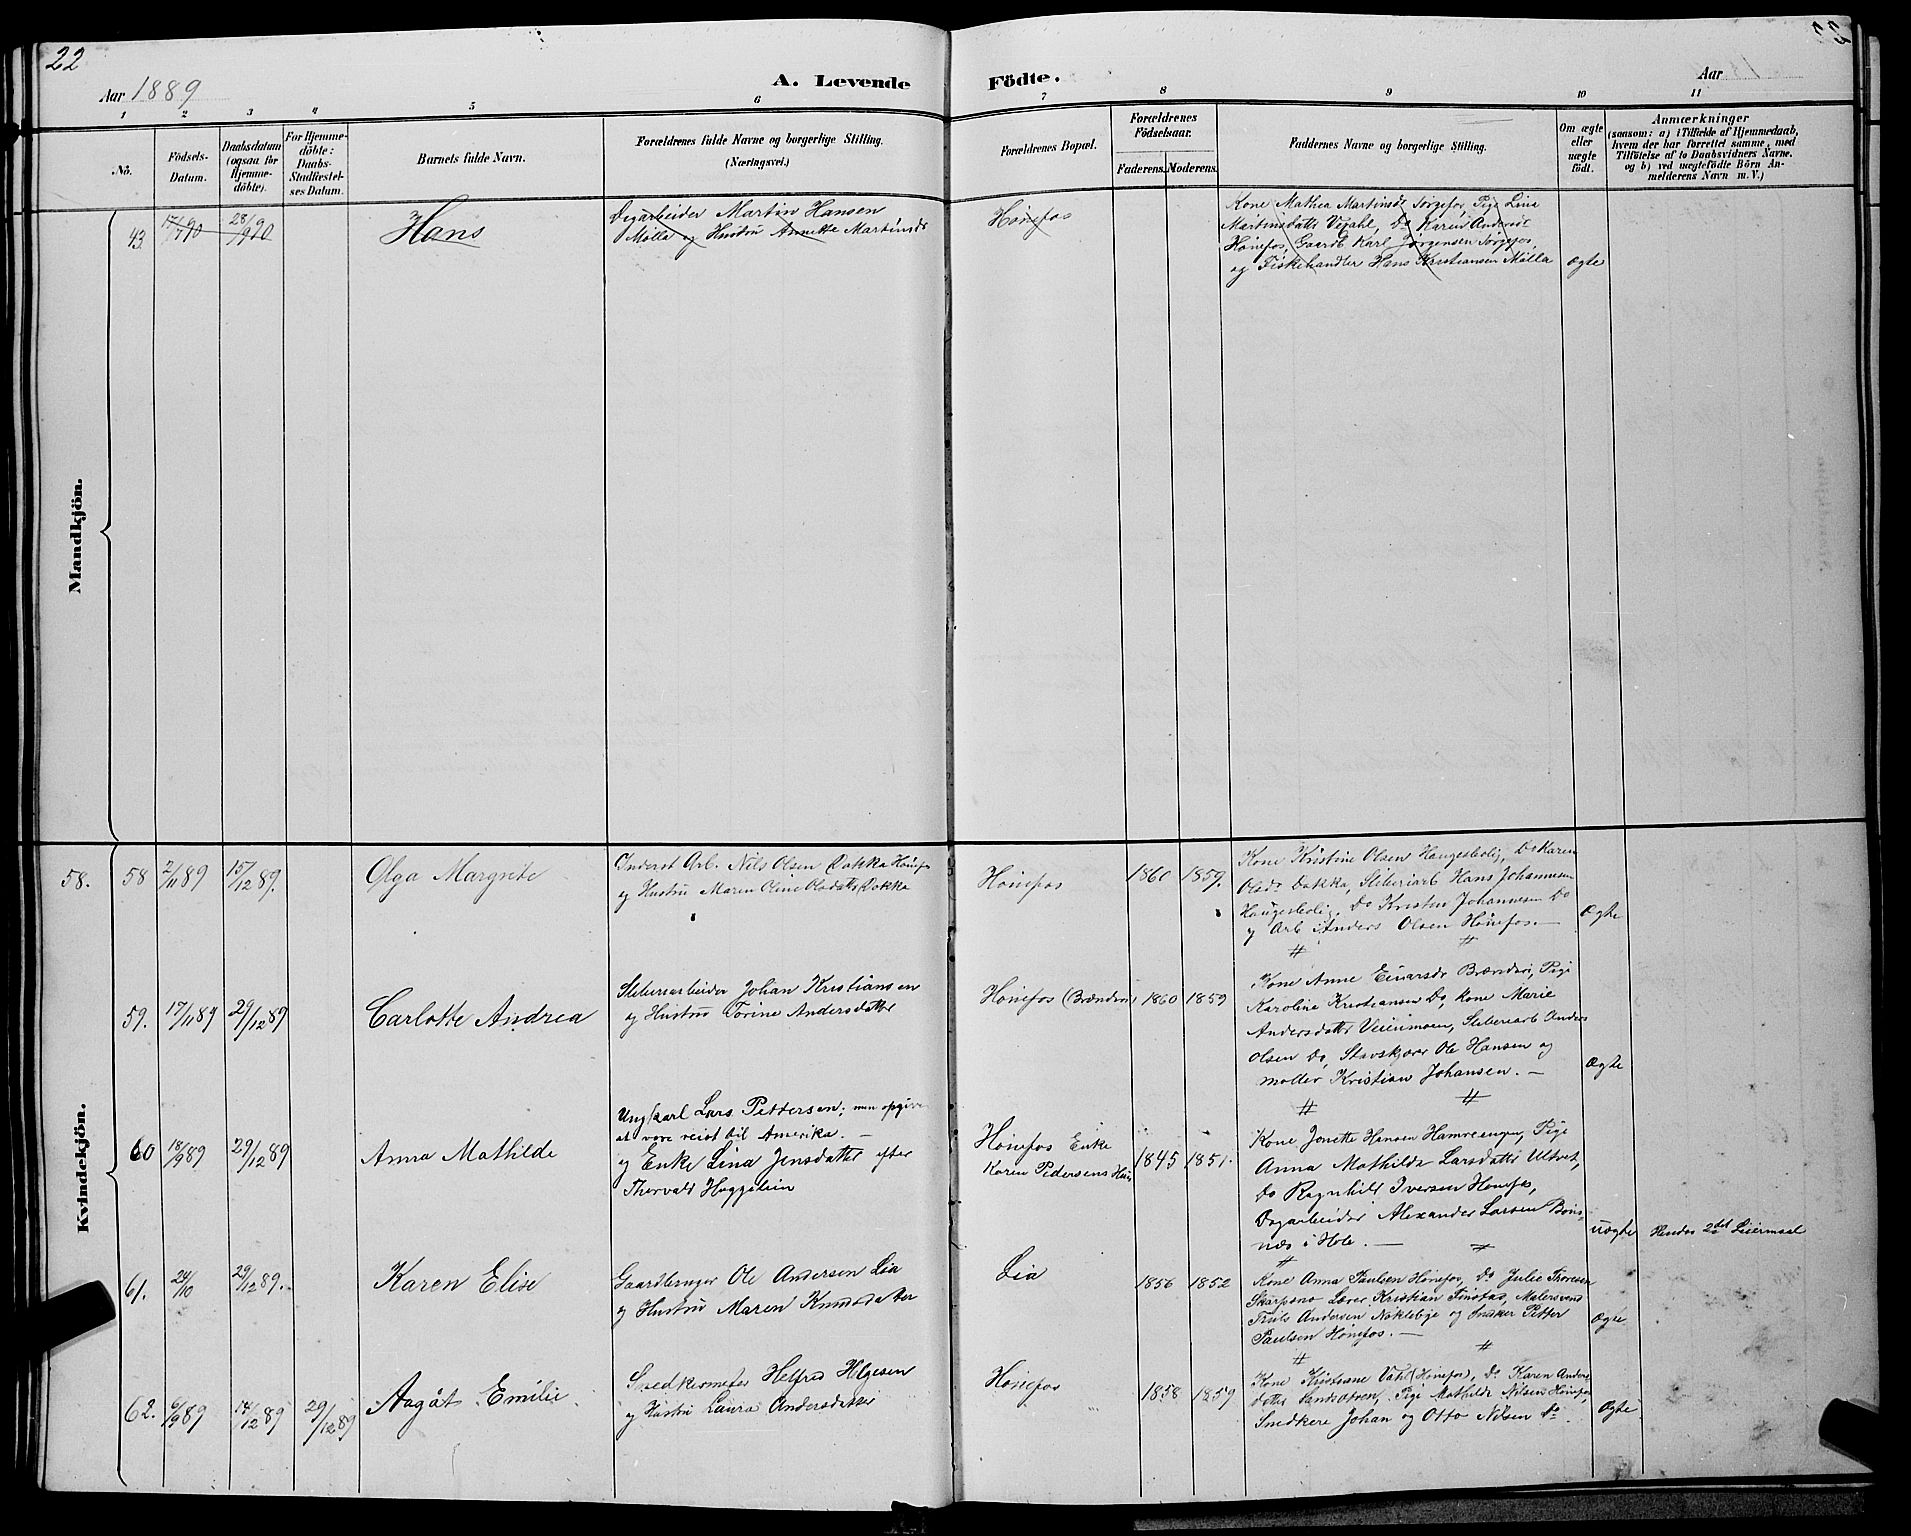 22
Aar 1889
A. Levende Födte.
Aar
1 2 3 4 5 6 7 8 9 10 11
No.
Födsels-Datum.
Daabsdatum (ogsaa for Hjemme-döbte).
For Hjemme-döbte: Daabs-Stadfæstel-ses Datum.
Barnets fulde Navn.
Forældrenes fulde Navne og borgerlige Stilling.
(Næringsvei.)
Forældrenes Bopæl.
Forældrenes Födselsaar.
Faderens. Moderens.
Faddernes Navne og borgerlige Stilling.
Om ægte eller uægte födt.
Anmærkninger
(saasom: a) i Tilfælde af Hjemmedaab,
hvem der har forrettet samme, med
Tilföielse af to Daabsvidners Navne.
og b) ved uægtefödte Börn An-
melderens Navn m. V.)
Mandkjön.
43 17/7 90 28/9 90 Hans
Dagarbeider Martin Hansen
Mølla og Hustru Annette Martinsdr
Hønefos
Kone Mathea Martinsdr Sorgefos, Pige Lina
Martinsdatter Vegahl, Do Karen Andersdr
Hønefos, Gaardb Karl Jørgensen Sorgefos,
og Fiskehandler Hans Kristiansen Mølla
Ægte
Kvindekjön.
58. 58 2/11 89 15/12 89. Olga Margrite
Inderst Arb. Nils Olsen Dokka Hønefos
og Hustru Maren Oline Olsdatter Dokka
Hønefos 1860 1859.
Kone Kristine Olsen Haugesbolig, Do Karen
Olsdr Dokka, Sliberiarb Hans Johannesen
Haugesbolig, Do Kristen Johannesen Do
og Arb Anders Olsen Hønefos. —
Ægte
59. 17/11 89 29/12 89 Carlotte Andrea
Sliberiarbeider Johan Kristiansen
og Hustru Torine Andersdatter
Hønefos 1860 1859
Kone Anne Einarsdr Brænderi, Pige
Karoline Kristiansen Do, Kone Marie
Andersdatter Veienmoen, Sliberiarb Anders
Olsen Do, Stavskjærer Ole Hansen og
Møller Kristian Johansen. —
Ægte
60 18/9 89 29/12 89 Anna Mathilde
Ungkarl Lars Pettersen; men opgives
at være reist til Amerika. —
og Enke Lina Jensdatter efter
Thorvald Huggstein
Hønefos Enke
Karen Pedersens Hus
1845 1851.
Kone Jonette Hansen Hamreengen, Pige
Anna Mathilde Larsdatter Ultvet,
Do Ragnhild Iversen Hønefos,
Dagarbeider Alexander Larsen Bøns-
næs i Hole. —
uægte
Hendes 2det Leiermaal
61. 24/10 29/12 89. Karen Elise
Gaardbruger Ole Andersen Lia
og Hustru Maren Knudsdatter
Lia 1856 1852
Kone Anna Paulsen Hønefos, Do Julie Thoresen
Skarpsno Lærer Kristian Finstad, Malersvend
Truls Andersen Nøkleby og Snedker Petter
Paulsen Hønefos. —
Ægte
62. 6/9 89 14/12 89 29/12 89 Aagåt Emilie
Snedkermester Helfred Helgesen
og Hustru Laura Andersdatter
Hønefos 1858 1859
Kone Kristiane Vahl (Hønefos), Do Karen Anders
datter Sandsbraaten, Pige Mathilde Nilsen Hønefos,
Snedkere Johan og Otto Nilsen Do.
Ægte